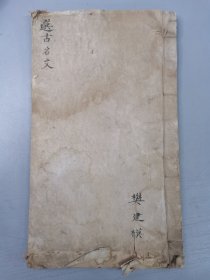 選古名文
樊建模